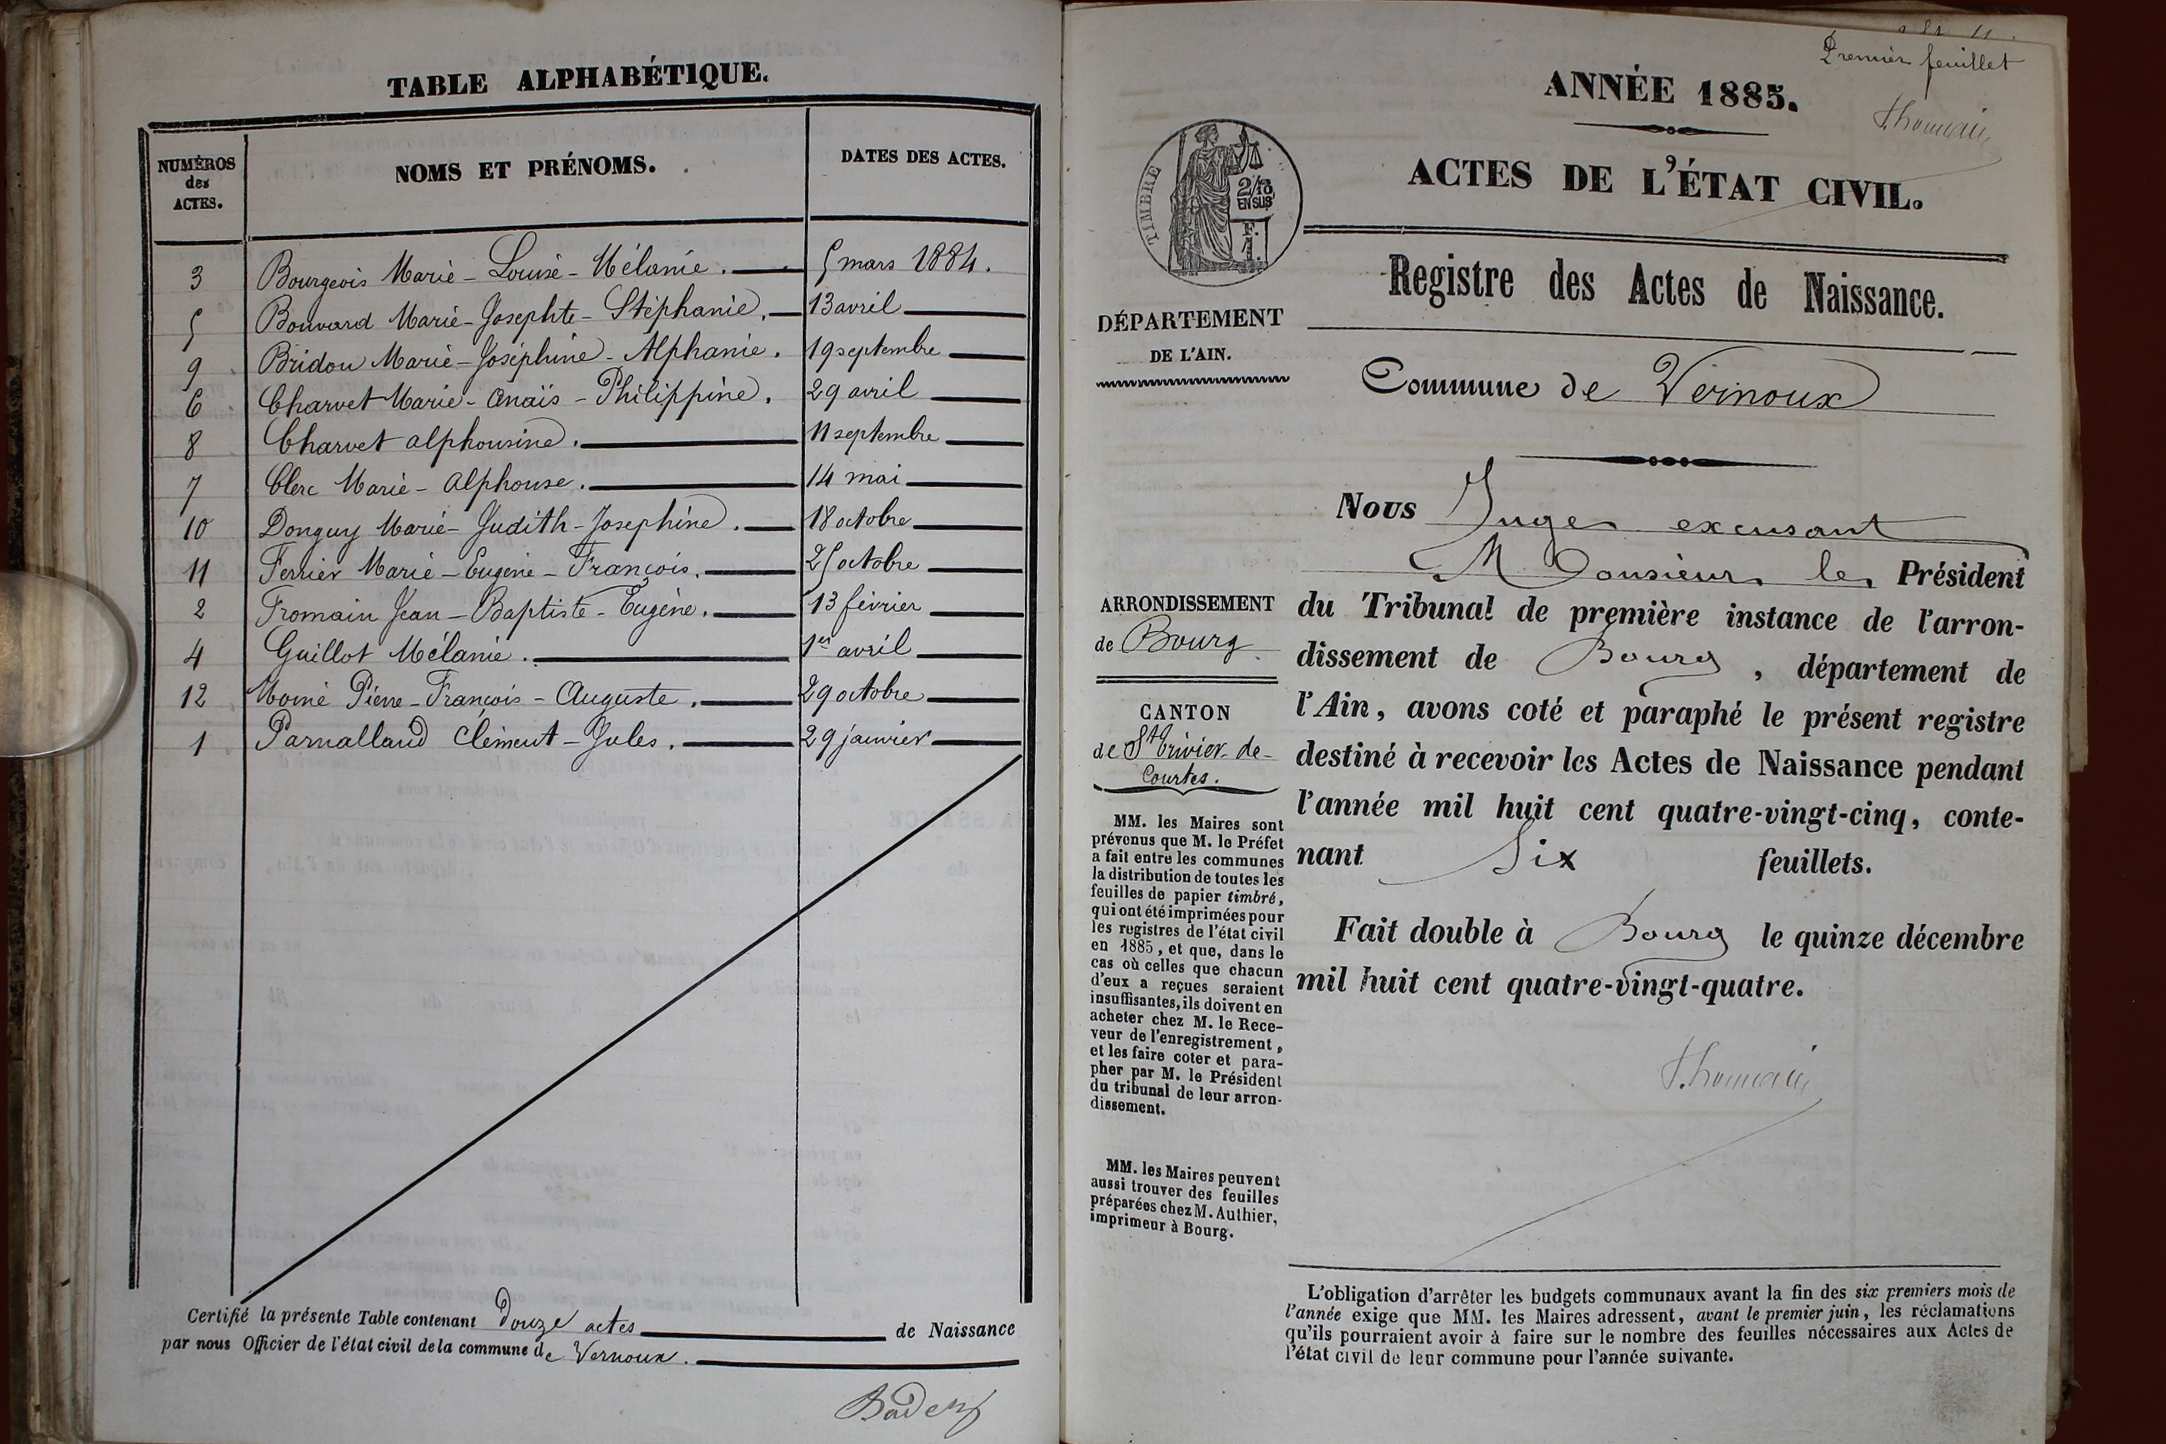 TABLE ALPHABÉTIQUE.
NUMÉROS des ACTES.
NOMS ET PRÉNOMS.
DATES DES ACTES.
3 Bourgeois Marie-Louise-Mélanie. 5 mars 1884.
5 Bouvard Marie-Josephte-Stéphanie. 13 avril
9 Bridon Marie-Joséphine-Alphanie. 19 septembre
6 Charvet Marie-Anaïs-Philippine. 29 avril
8 Charvet Alphonsine. 11 septembre
7 Clerc Marie-Alphonse. 14 mai
10 Donguy Marie-Judith-Josephine. 18 octobre
11 Ferrier Marie-Eugène-François. 25 octobre
2 Fromain Jean-Baptiste-Eugène. 13 février
4 Guillot Mélanie. 1er avril
12 Moine Pierre-François-Auguste. 29 octobre
1 Parnalland Clément-Jules. 29 janvier
Certifié la présente Table contenant Douze actes de Naissance
par nous Officier de l'état civil de la commune de Vernoux.
Premier feuillet
ANNÉE 1885.
ACTES DE L'ÉTAT CIVIL.
TIMBRE
2/10
EN SUS
F.
1.
Registre des Actes de Naissance.
DÉPARTEMENT
DE L'AIN.
Commune de Vernoux
Nous Juge excusant
Monsieur le Président
ARRONDISSEMENT
de Bourg
du Tribunal de première instance de l'arron-
dissement de Bourg, département de
l'Ain, avons coté et paraphé le présent registre
destiné à recevoir les Actes de Naissance pendant
l'année mil huit cent quatre-vingt-cinq, conte-
nant Six feuillets.
CANTON
de St Trivier-de-
Courtes.
MM. les Maires sont
prévenus que M. le Préfet
a fait entre les communes
la distribution de toutes les
feuilles de papier timbré,
qui ont été imprimées pour
les registres de l'état civil
en 1885, et que, dans le
cas où celles que chacun
d'eux a reçues seraient
insuffisantes, ils doivent en
acheter chez M. le Rece-
veur de l'enregistrement,
et les faire coter et para-
pher par M. le Président
du tribunal de leur arron-
dissement.
Fait double à Bourg le quinze décembre
mil huit cent quatre-vingt-quatre.
MM. les Maires peuvent
aussi trouver des feuilles
préparées chez M. Authier,
imprimeur à Bourg.
L'obligation d'arrêter les budgets communaux avant la fin des six premiers mois de
l'année exige que MM. les Maires adressent, avant le premier juin, les réclamations
qu'ils pourraient avoir à faire sur le nombre des feuilles nécessaires aux Actes de
l'état civil de leur commune pour l'année suivante.